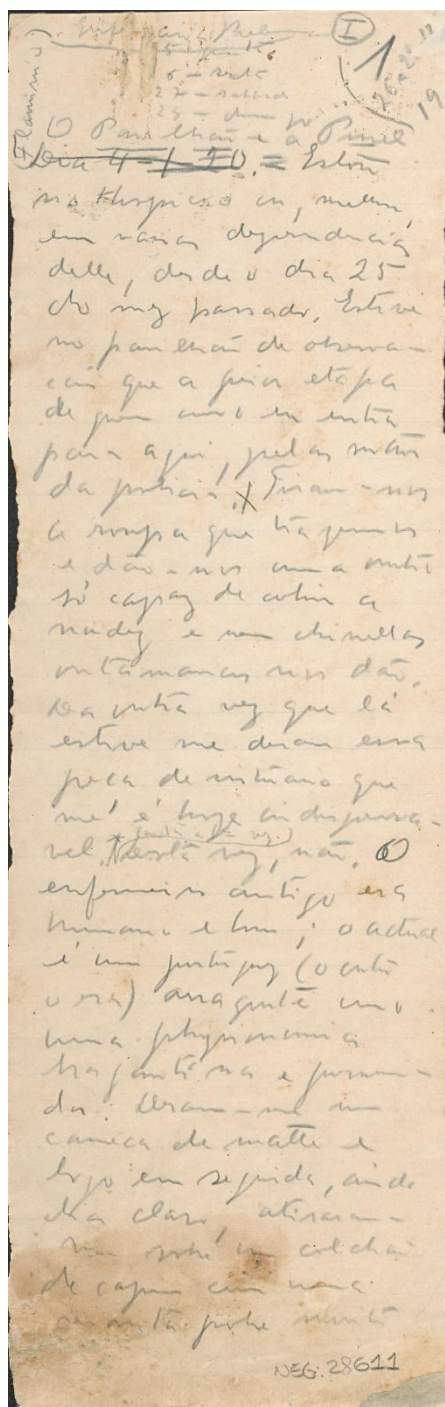 I
1
O Pavilhão e a Pinel
Dia 4-1-20. = Estou
no Hospicio ou, melhor,
em varias dependencias
delle, desde o dia 25
do mez passado. Estive
no pavilhão de observa-
ção que a peior etapa
de quem como eu entra
para aqui, pelas mãos
da policia. X Tiram-nos
a roupa que trazemos
e dão-nos uma outra
só capaz de cobrir a
nudez e nem chinellos
ou tamancos nos dão.
Da outra vez que lá
estive me deram essa
peça de vistuario que
me é hoje indispensa-
vel. Desta vez, não. O
enfermeiro antigo era
humano e bom; o actual
é um portuguez (o outro
o era) arrogante com
uma physionomia
bragantina e presumi-
da. Deram-me uma
caneca de matte e
logo em seguida, ainda
dia claro, atiraram-
me sobre um colchão
de capim com uma
manta pobre muito
NEG. 28611